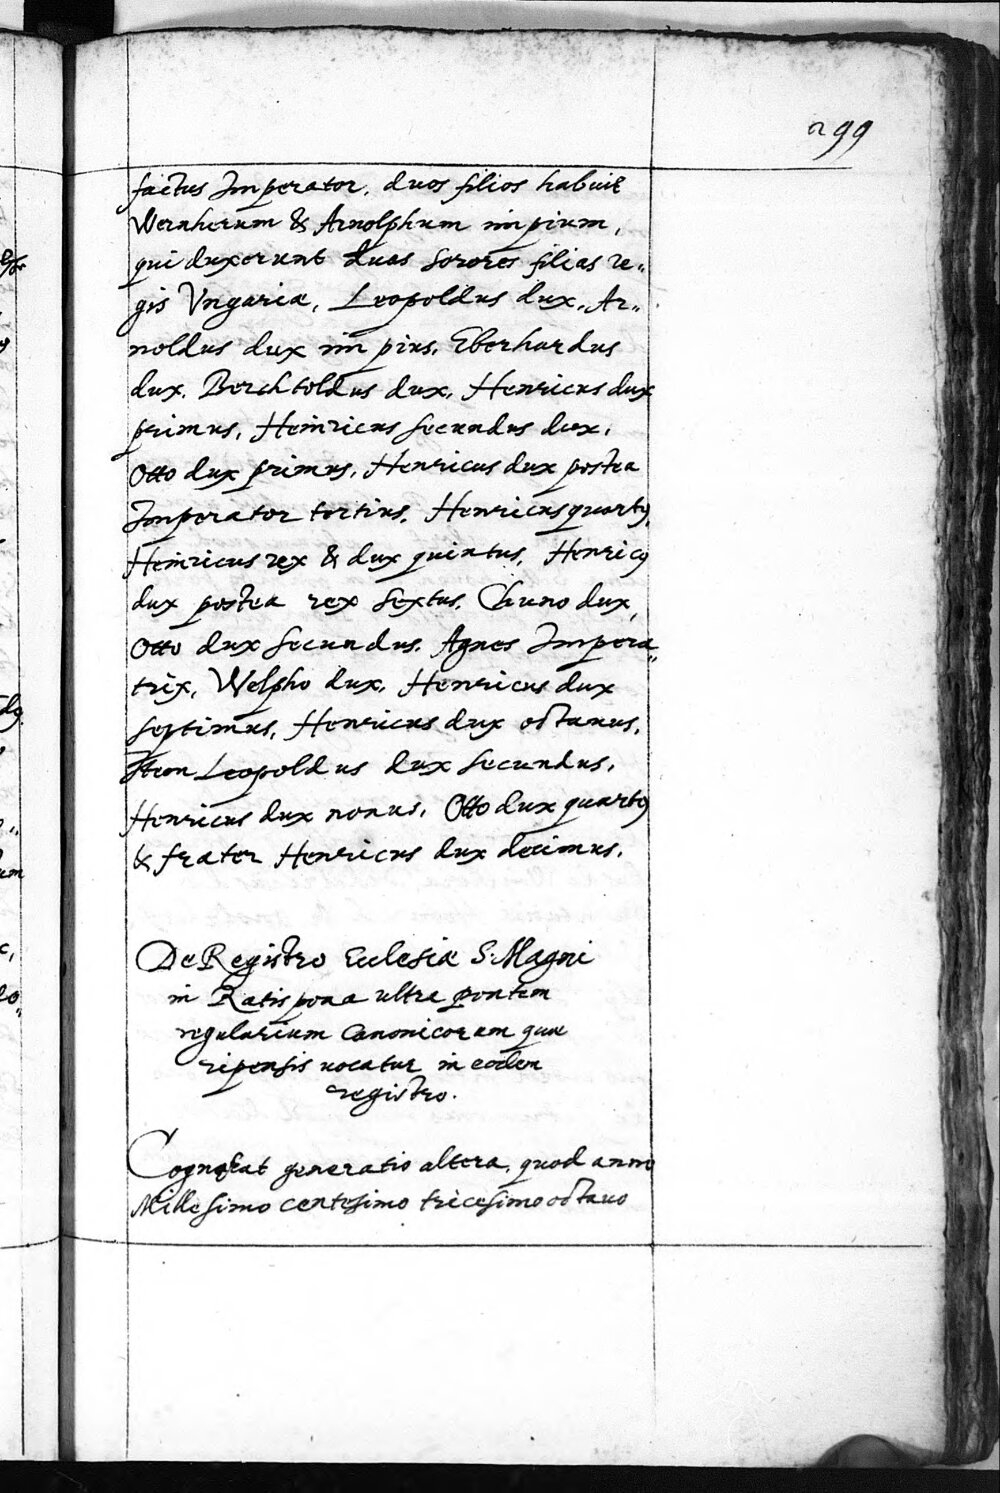 299
factus Imperator, duos filios habuit
Wernherum & Arnolphum impium,
qui duxerunt duas sorores filias re„
gis Vngariæ, Leopoldus dux, Ar„
noldus dux impius, Eberhardus
dux, Berchtoldus dux, Henricus dux
primus, Heinricus secundus dux,
Otto dux primus, Henricus dux postea
Imperator tertius, Henricus quartꝰ,
Heinricus rex & dux quintus, Henricꝰ
dux postea rex sextus, Chuno dux,
Otto dux secundus, Agnes Impera„
trix, Welpho dux, Henricus dux
septimus, Henricus dux octauus,
Item Leopoldus dux secundus,
Henricus dux nonus, Otto dux quartꝰ
& frater Henricus dux decimus.
De Registro Ecclesiæ S. Magni
in Ratispona ultra pontem
regularium Canonicorum quæ
ripensis uocatur in eodem
registro.
Cognoscat generatio altera, quod anno
Millesimo centesimo tricesimo octauo